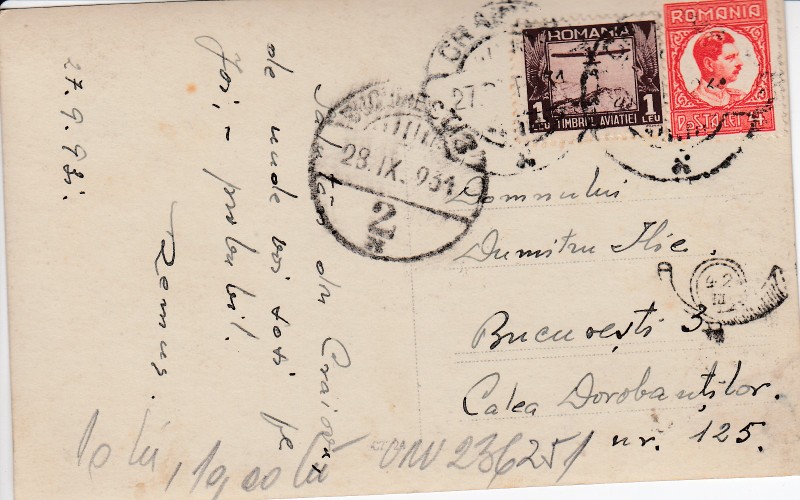 Salutări din Craiova,
de unde voi sosi pe
Joi, – probabil.
Remus.
27.9.931.
ROMANIA
1 LEU TIMBRUL AVIATIEI 1 LEU
ROMANIA
POSTA LEI 4
27.
BUCUREȘTI
28.IX.931
2
Domnului
Dumitru Ilie.
București 3
Calea Dorobanților.
nr. 125.
42
III
10 lei, 10,00 lei
236251